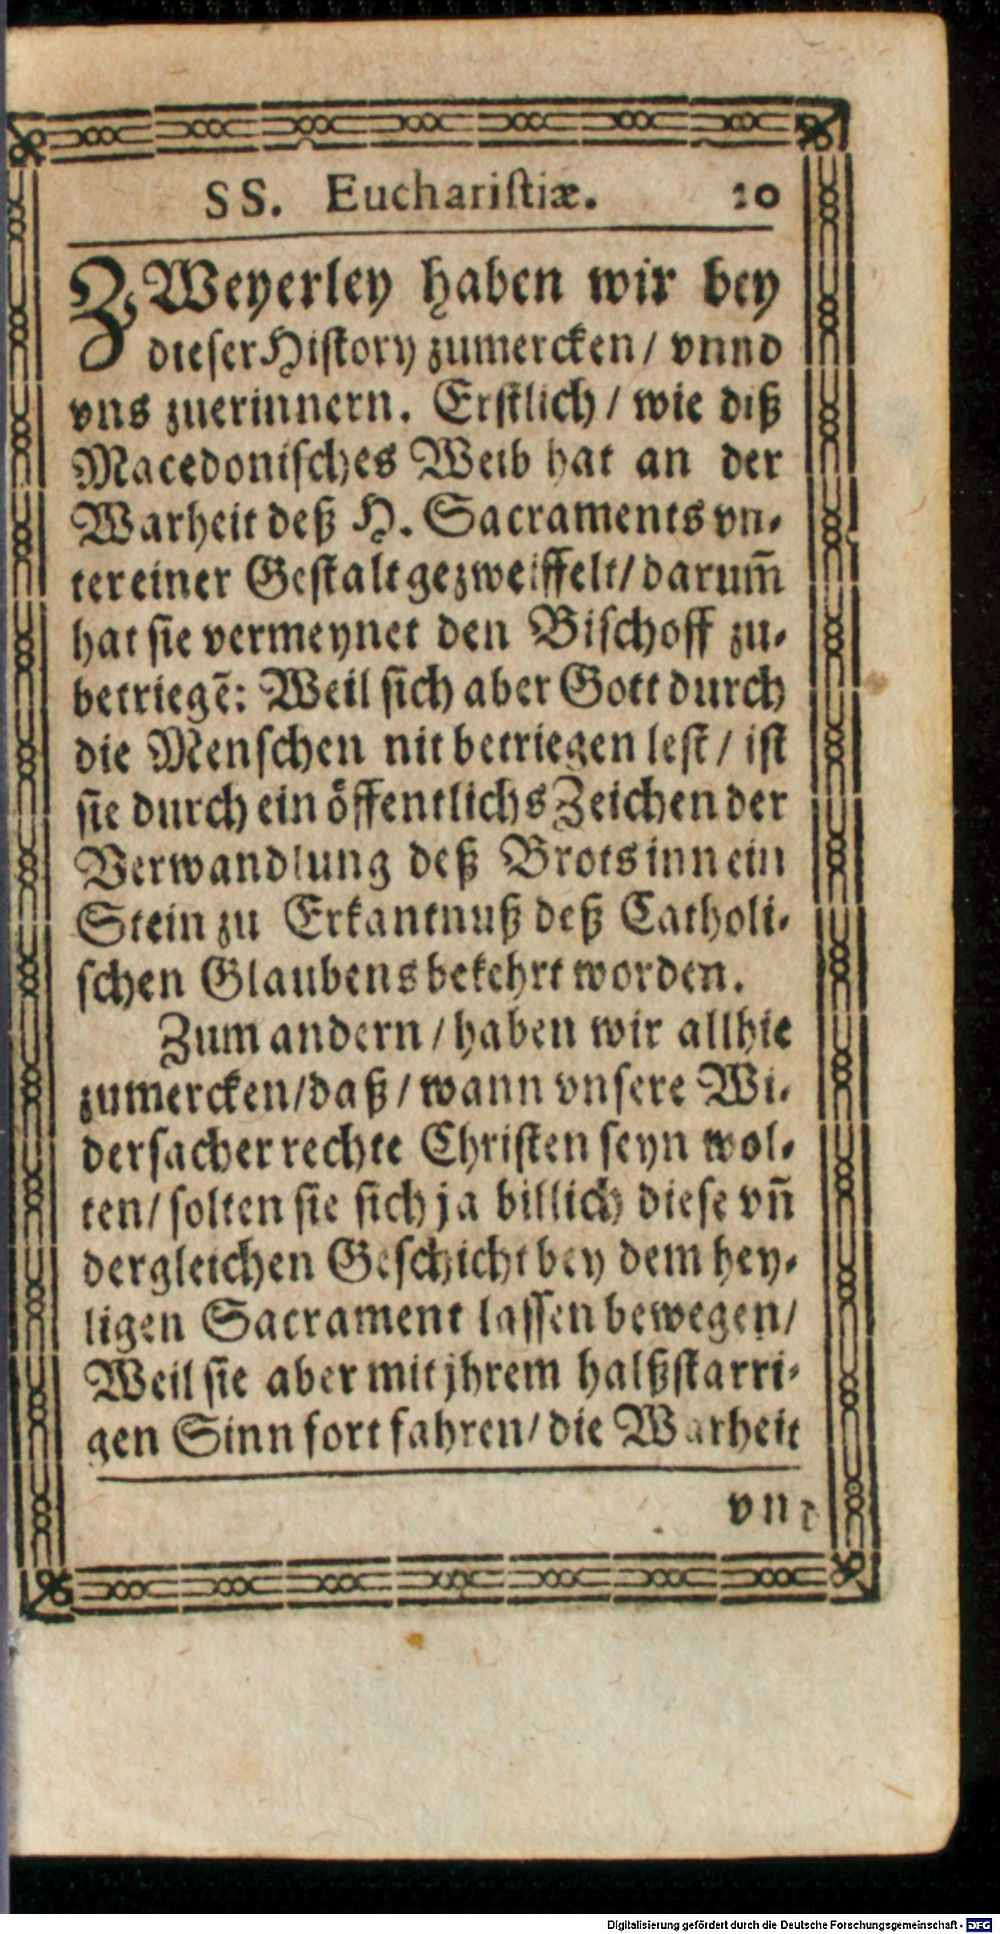 SS. Euchariſtiæ. 20
ZWeyerley haben wir bey
dieser History zumercken / vnnd
vns zuerinnern. Erstlich / wie diß
Macedonisches Weib hat an der
Warheit deß H. Sacraments vn-
ter einer Gestalt gezweiffelt / darum̃
hat sie vermeynet den Bischoff zu-
betriegẽ: Weil sich aber Gott durch
die Menschen nit betriegen lest / ist
sie durch ein öffentlichs Zeichen der
Verwandlung deß Brots inn ein
Stein zu Erkantnuß deß Catholi-
schen Glaubens bekehrt worden.
Zum andern / haben wir allhie
zumercken / daß / wann vnsere Wi-
dersacher rechte Christen seyn wol-
ten / solten sie sich ja billich diese vñ
dergleichen Geschicht bey dem hey-
ligen Sacrament lassen bewegen /
Weil sie aber mit jhrem halßstarri-
gen Sinn fort fahren / die Warheit
vnd
Digitalisierung gefördert durch die Deutsche Forschungsgemeinschaft - DFG